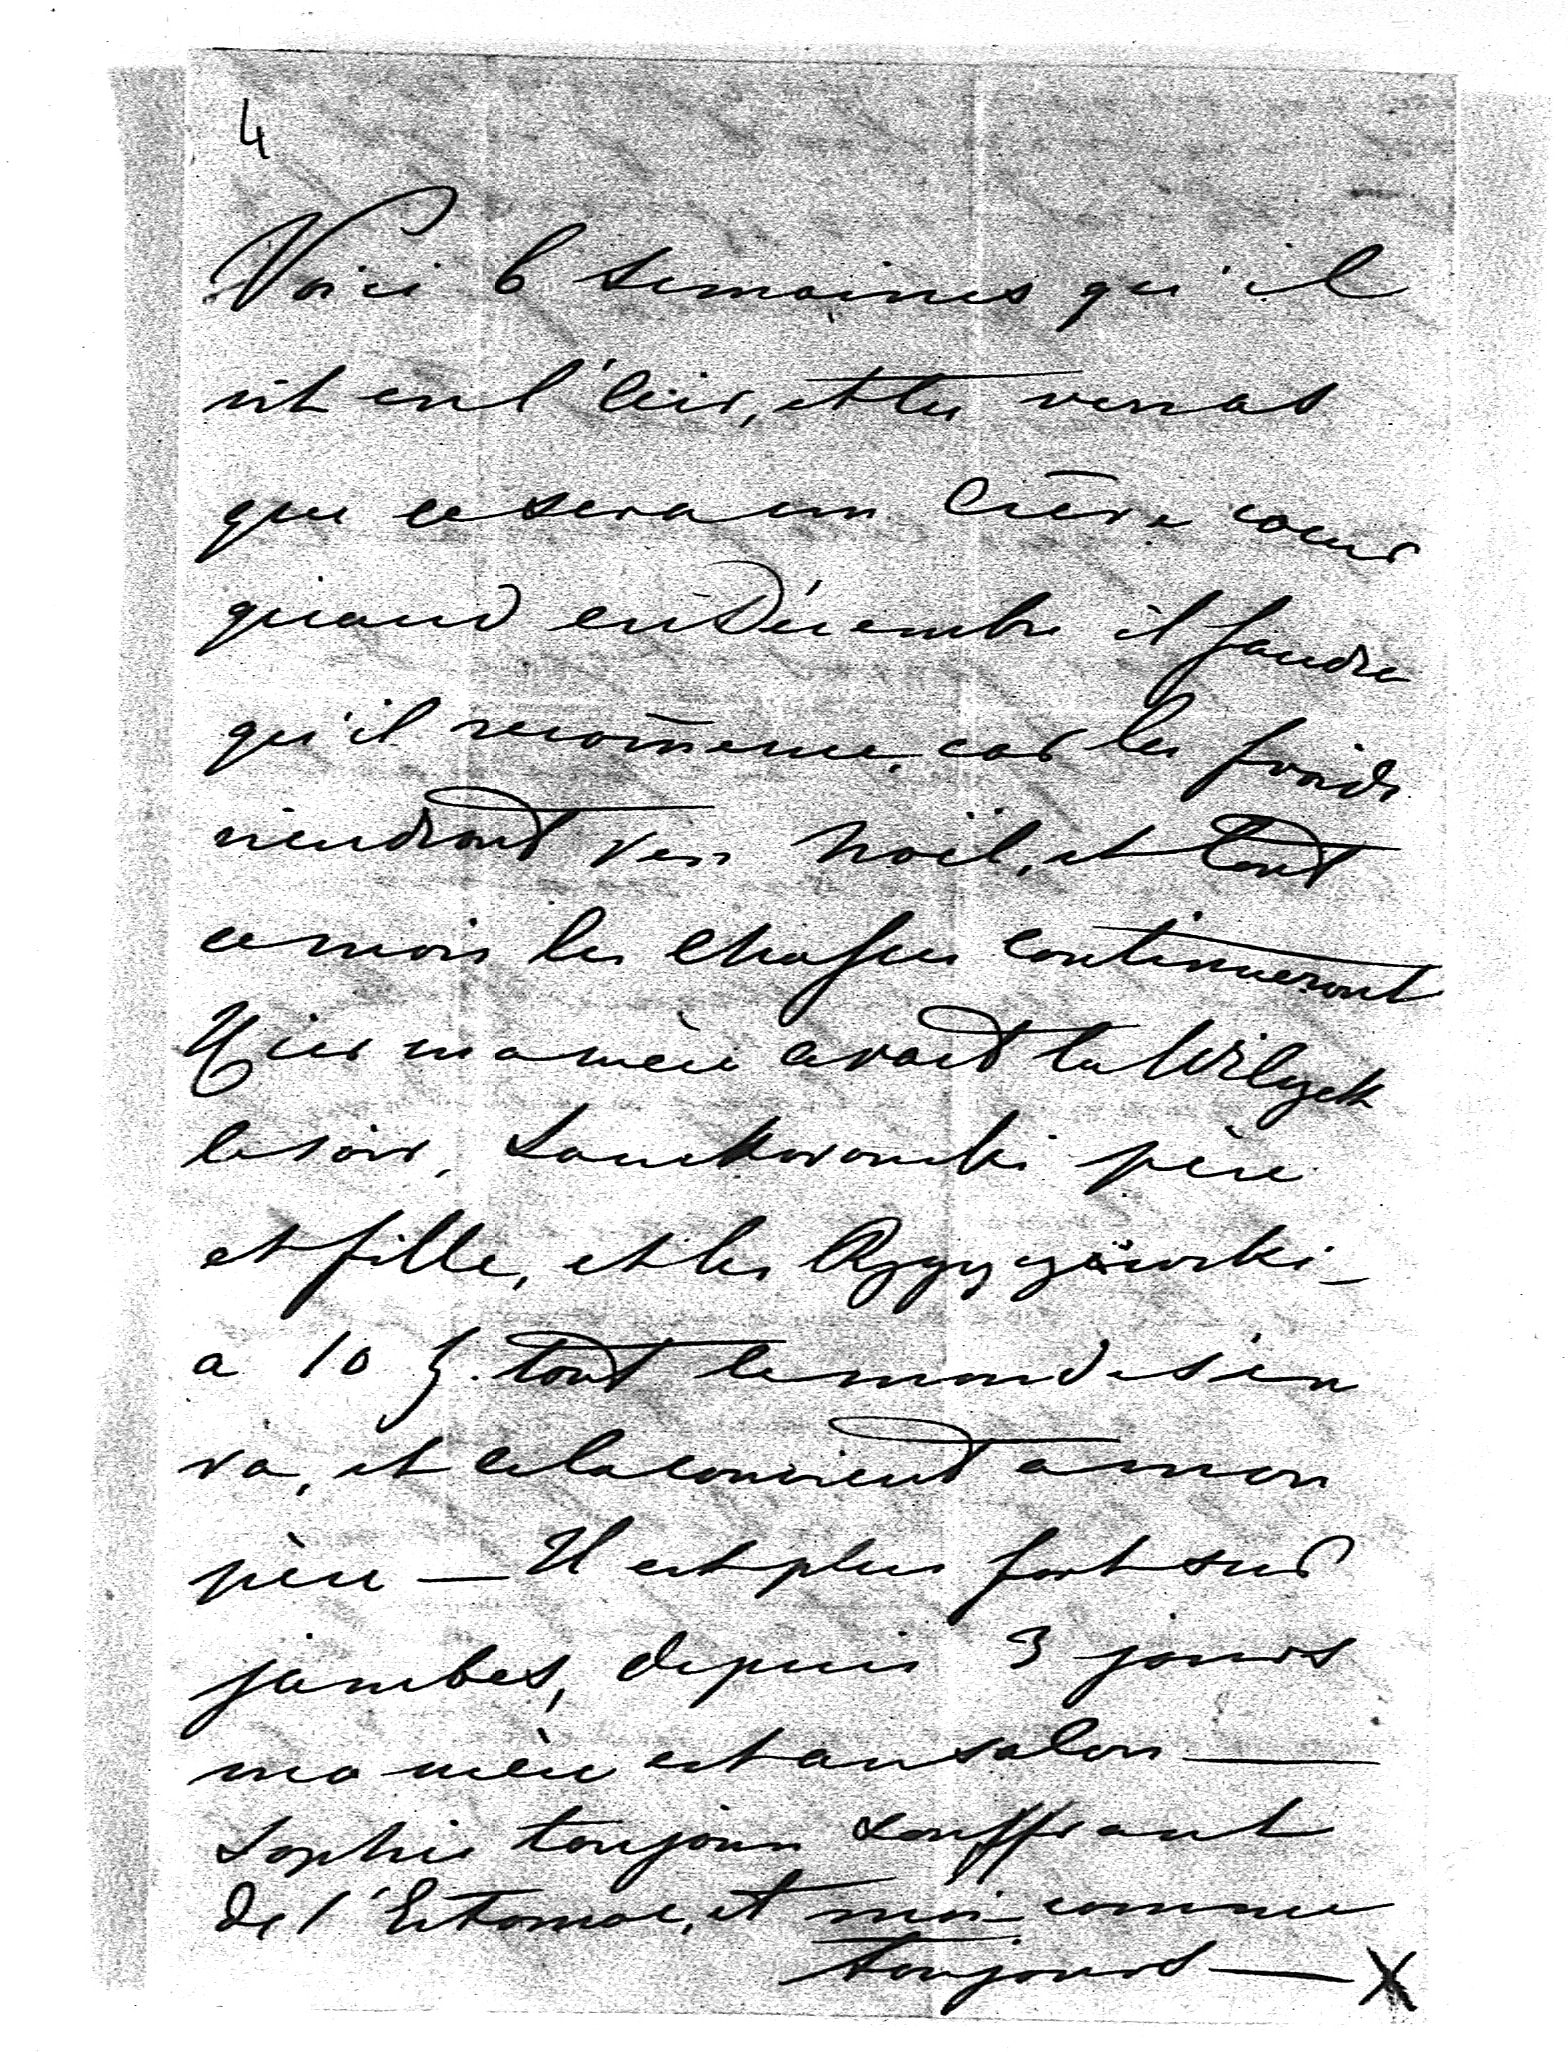 4
Voici 6 semaines qu'il
vit en l'air, et tu verras
que ce sera un crève coeur
quand en Décembre il faudra
qu'il recom̄ence, car les froids
viendront vers Noël, et tout
ce mois les chasses continueront
Hier ma mère avait la Wilczek
le soir, Lanckoronski père
et fille, et les
a 10 h. tout le monde s'en
va, et cela convient a mon
père — Il est plus fort sur
jambes, depuis 3 jours
ma mère est au salon —
Sophie toujours souffrant
de l'Estomac, et moi comme
toujours — X